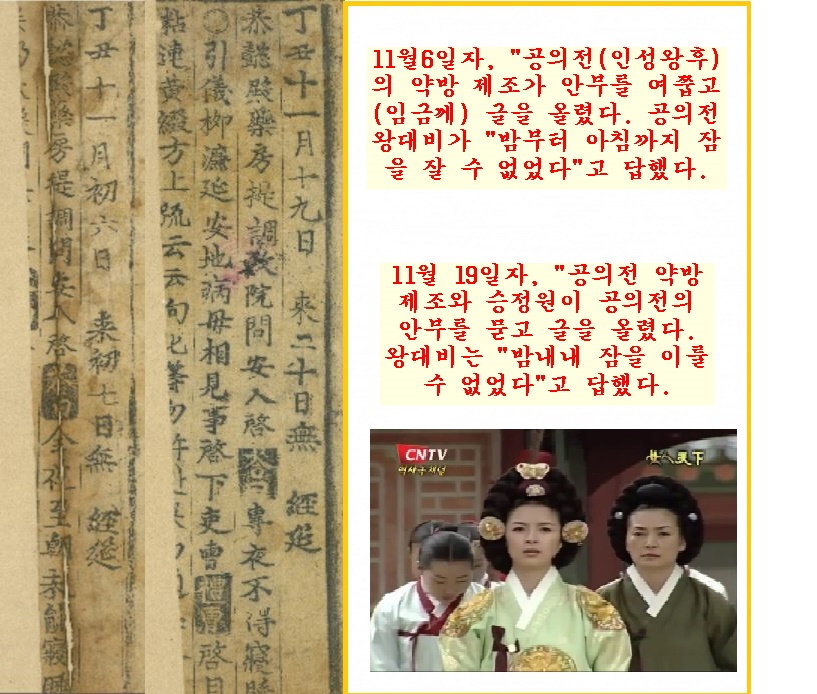 丁丑十一月初六日 來初七日無 經筵
恭懿殿藥房提調問安入啓 答曰 今夜至朝未能寢睡
丁丑十一月十九日 來二十日無 經筵
恭懿殿藥房提調政院問安入啓 答 專夜不得寢睡
○引儀柳濂延安地病母相見事啓下吏曹 禮曹 啓曰
粘連黃綴方上疏云云句乜等勿許
11월6일자, "공의전(인성왕후)
의 약방 제조가 안부를 여쭙고
(임금께) 글을 올렸다. 공의전
왕대비가 "밤부터 아침까지 잠
을 잘 수 없었다"고 답했다.
11월 19일자, "공의전 약방
제조와 승정원이 공의전의
안부를 묻고 글을 올렸다.
왕대비는 "밤내내 잠을 이룰
수 없었다"고 답했다.
CNTV
역사극채널
女人天下